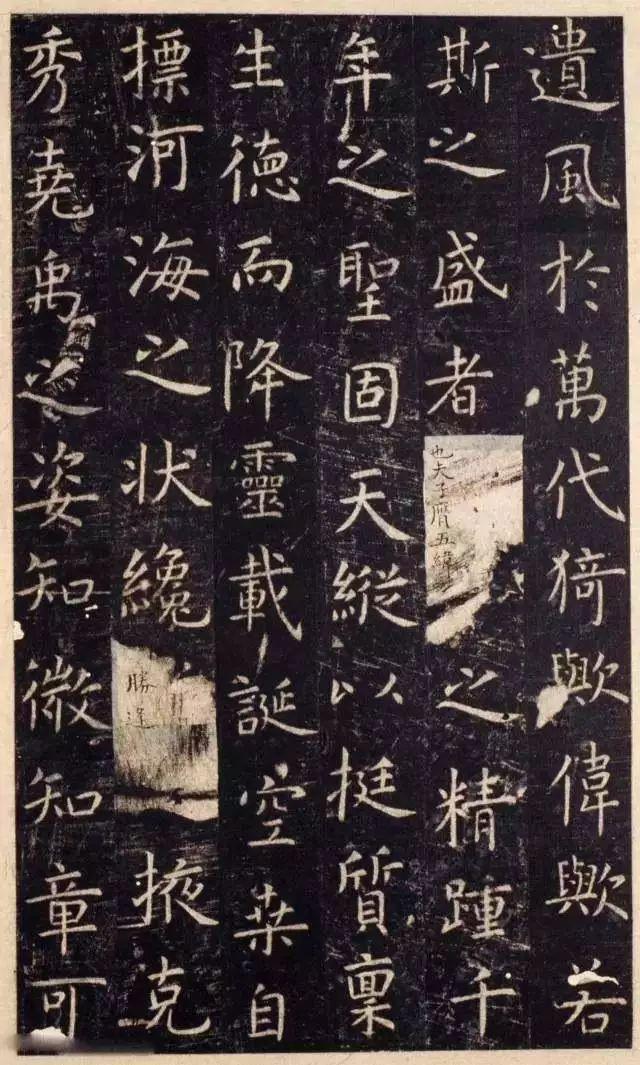 遺風於萬代猗歟偉歟若
斯之盛者也夫子膺五緯之精踵千
年之聖固天縱以挺質稟
生德而降靈載誕空桒自
摽河海之状纔勝逢掖克
秀堯禹之姿知微知章可